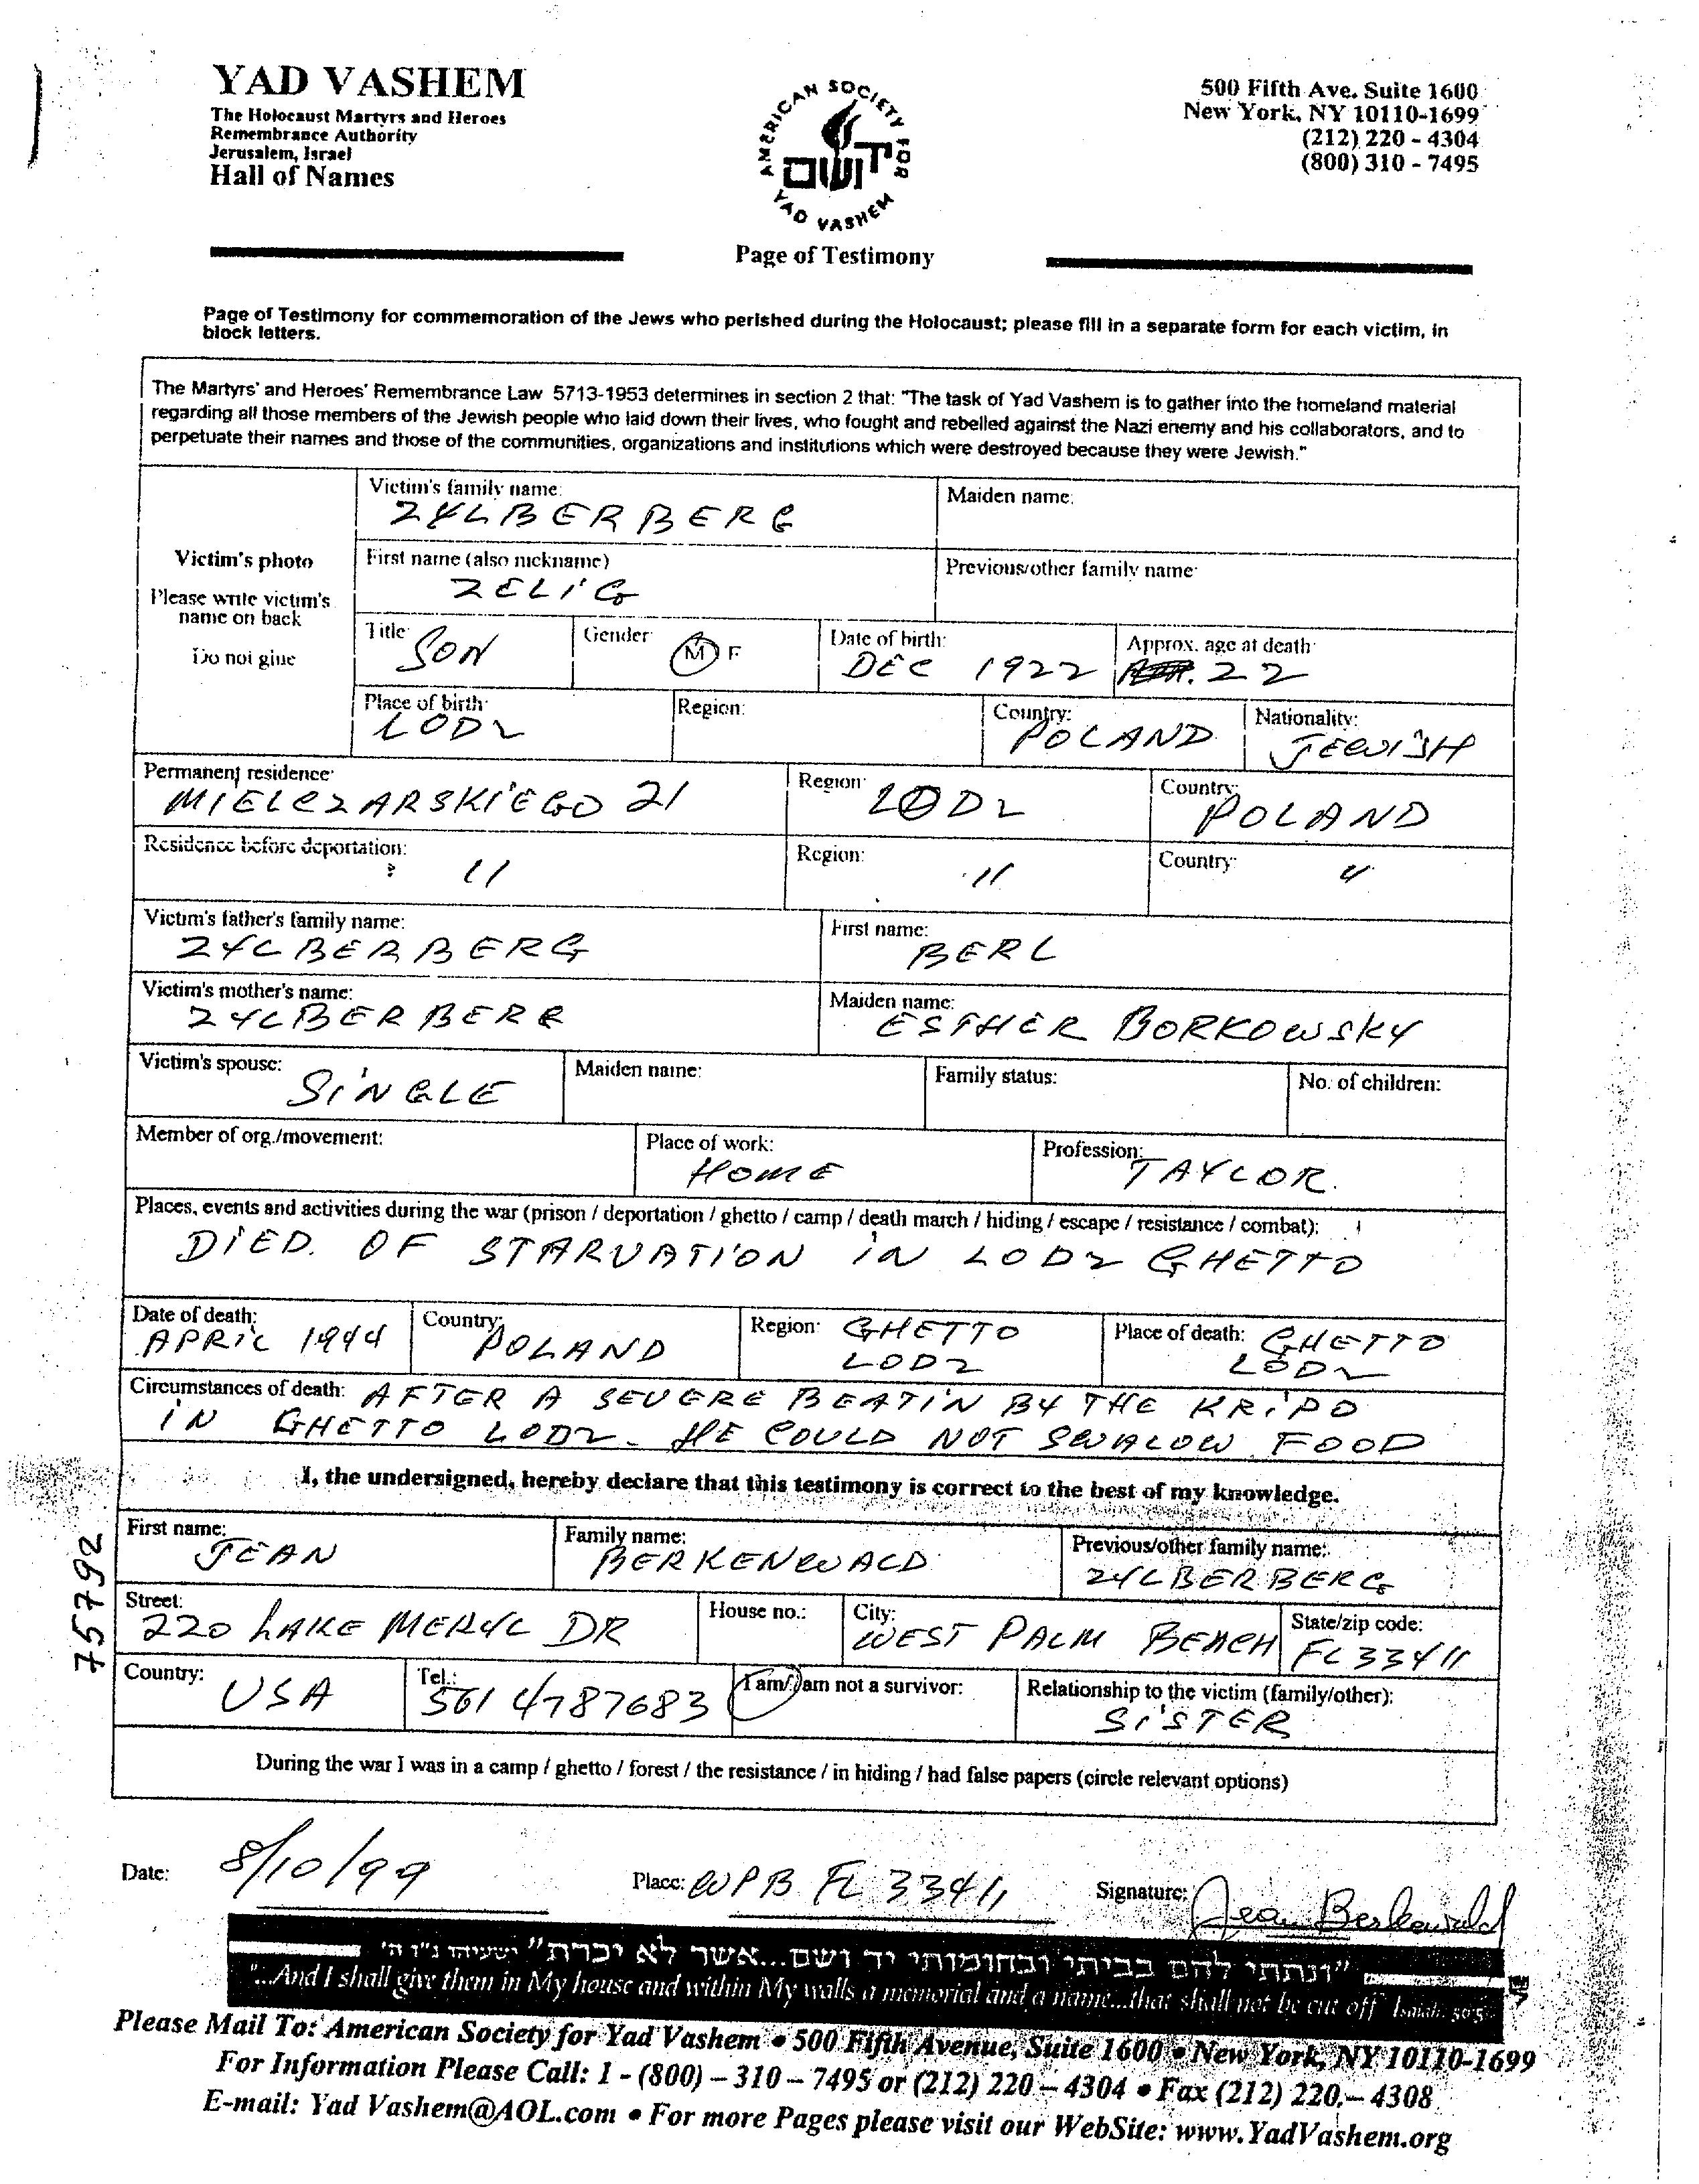 YAD VASHEM
The Holocaust Martyrs and Heroes
Remembrance Authority
Jerusalem, Israel
Hall of Names
AMERICAN SOCIETY FOR
יד ושם
YAD VASHEM
Page of Testimony
500 Fifth Ave. Suite 1600
New York, NY 10110-1699
(212) 220 - 4304
(800) 310 - 7495
Page of Testimony for commemoration of the Jews who perished during the Holocaust; please fill in a separate form for each victim, in
block letters.
The Martyrs' and Heroes' Remembrance Law 5713-1953 determines in section 2 that: "The task of Yad Vashem is to gather into the homeland material
regarding all those members of the Jewish people who laid down their lives, who fought and rebelled against the Nazi enemy and his collaborators, and to
perpetuate their names and those of the communities, organizations and institutions which were destroyed because they were Jewish."
Victim's photo
Please write victim's
name on back
Do not glue
Victim's family name: ZYLBERBERG
Maiden name:
First name (also nickname) ZELIG
Previous/other family name:
Title: SON
Gender: M F
Date of birth: DEC 1922
Approx. age at death: 22
Place of birth: LODZ
Region:
Country: POLAND
Nationality: JEWISH
Permanent residence: MIELCZARSKIEGO 21
Region: LODZ
Country: POLAND
Residence before deportation: "
Region: "
Country: "
Victim's father's family name: ZYLBERBERG
First name: BERL
Victim's mother's name: ZYLBERBERG
Maiden name: ESTHER BORKOWSKY
Victim's spouse: SINGLE
Maiden name:
Family status:
No. of children:
Member of org./movement:
Place of work: HOME
Profession: TAYLOR
Places, events and activities during the war (prison / deportation / ghetto / camp / death march / hiding / escape / resistance / combat):
DIED. OF STARVATION IN LODZ GHETTO
Date of death: APRIL 1944
Country: POLAND
Region: GHETTO LODZ
Place of death: GHETTO LODZ
Circumstances of death: AFTER A SEVERE BEATIN BY THE KRIPO
IN GHETTO LODZ. HE COULD NOT SWALOW FOOD
I, the undersigned, hereby declare that this testimony is correct to the best of my knowledge.
First name: JEAN
Family name: BERKENWALD
Previous/other family name: ZYLBERBERG
Street: 220 LAKE MERYL DR
House no.:
City: WEST PALM BEACH
State/zip code: FL 33411
Country: USA
Tel.: 561 4787683
I am/I am not a survivor:
Relationship to the victim (family/other): SISTER
During the war I was in a camp / ghetto / forest / the resistance / in hiding / had false papers (circle relevant options)
75792
Date: 8/10/99
Place: WPB FL 33411
Signature: Jean Berkenwald
"ונתתי להם בביתי ובחומותי יד ושם...אשר לא יכרת" ישעיהו נ"ו ה'
"...And I shall give them in My house and within My walls a memorial and a name...that shall not be cut off" Isaiah. 56:5
Please Mail To: American Society for Yad Vashem • 500 Fifth Avenue, Suite 1600 • New York, NY 10110-1699
For Information Please Call: 1 - (800) – 310 – 7495 or (212) 220 – 4304 • Fax (212) 220 – 4308
E-mail: Yad Vashem@AOL.com • For more Pages please visit our WebSite: www.YadVashem.org